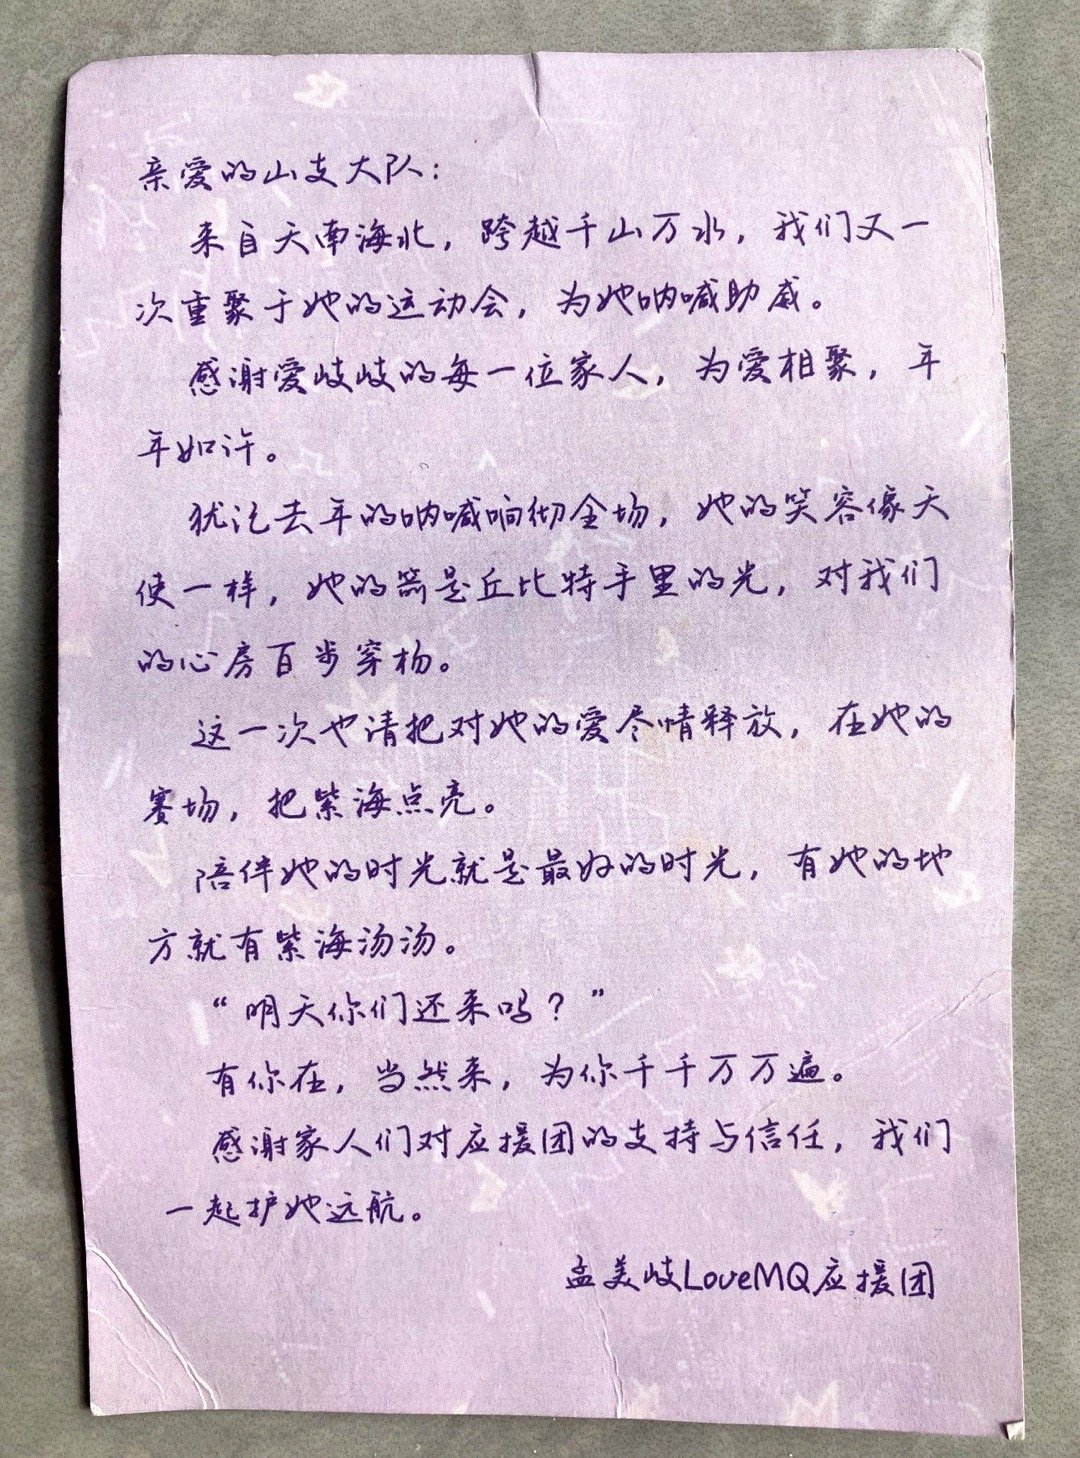 亲爱的山支大队：
来自天南海北，跨越千山万水，我们又一
次重聚于她的运动会，为她呐喊助威。
感谢爱岐岐的每一位家人，为爱相聚，年
年如许。
犹记去年的呐喊响彻全场，她的笑容像天
使一样，她的箭是丘比特手里的光，对我们
的心房百步穿杨。
这一次也请把对她的爱尽情释放，在她的
赛场，把紫海点亮。
陪伴她的时光就是最好的时光，有她的地
方就有紫海汤汤。
“明天你们还来吗？”
有你在，当然来，为你千千万万遍。
感谢家人们对应援团的支持与信任，我们
一起护她远航。
孟美岐LoveMQ应援团